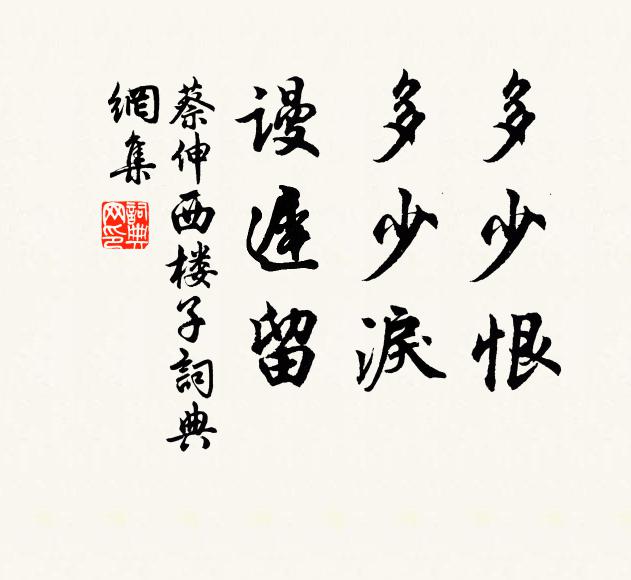 多少恨
多少淚
謾遲留
蔡伸西楼子詞典
網集
詞典
网印